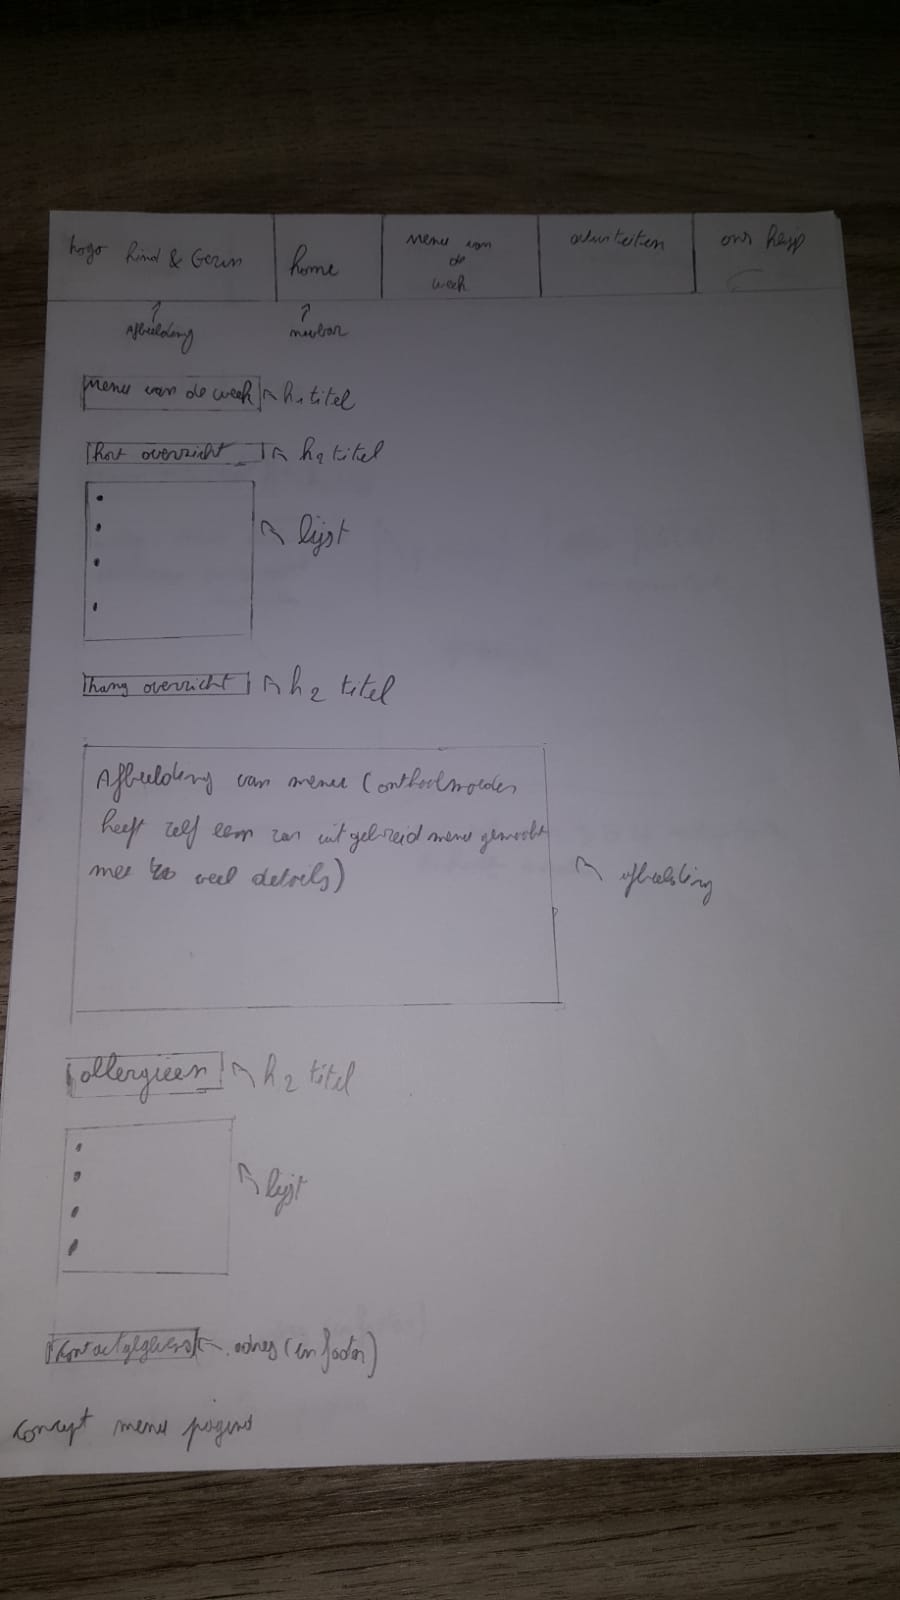 logo Kind & Gezin
home
menu van
de
week
activiteiten
ons
Afbeelding
navbar
menu van de week
h1 titel
kort overzicht
h2 titel
lijst
lang overzicht
h2 titel
Afbeelding van menu (onthaalmoeder
heeft zelf een zan uitgebreid menu gemaakt
met zo veel details)
afbeelding
allergieën
h2 titel
lijst
contactgegevens
adres (in footer)
concept menu pagina